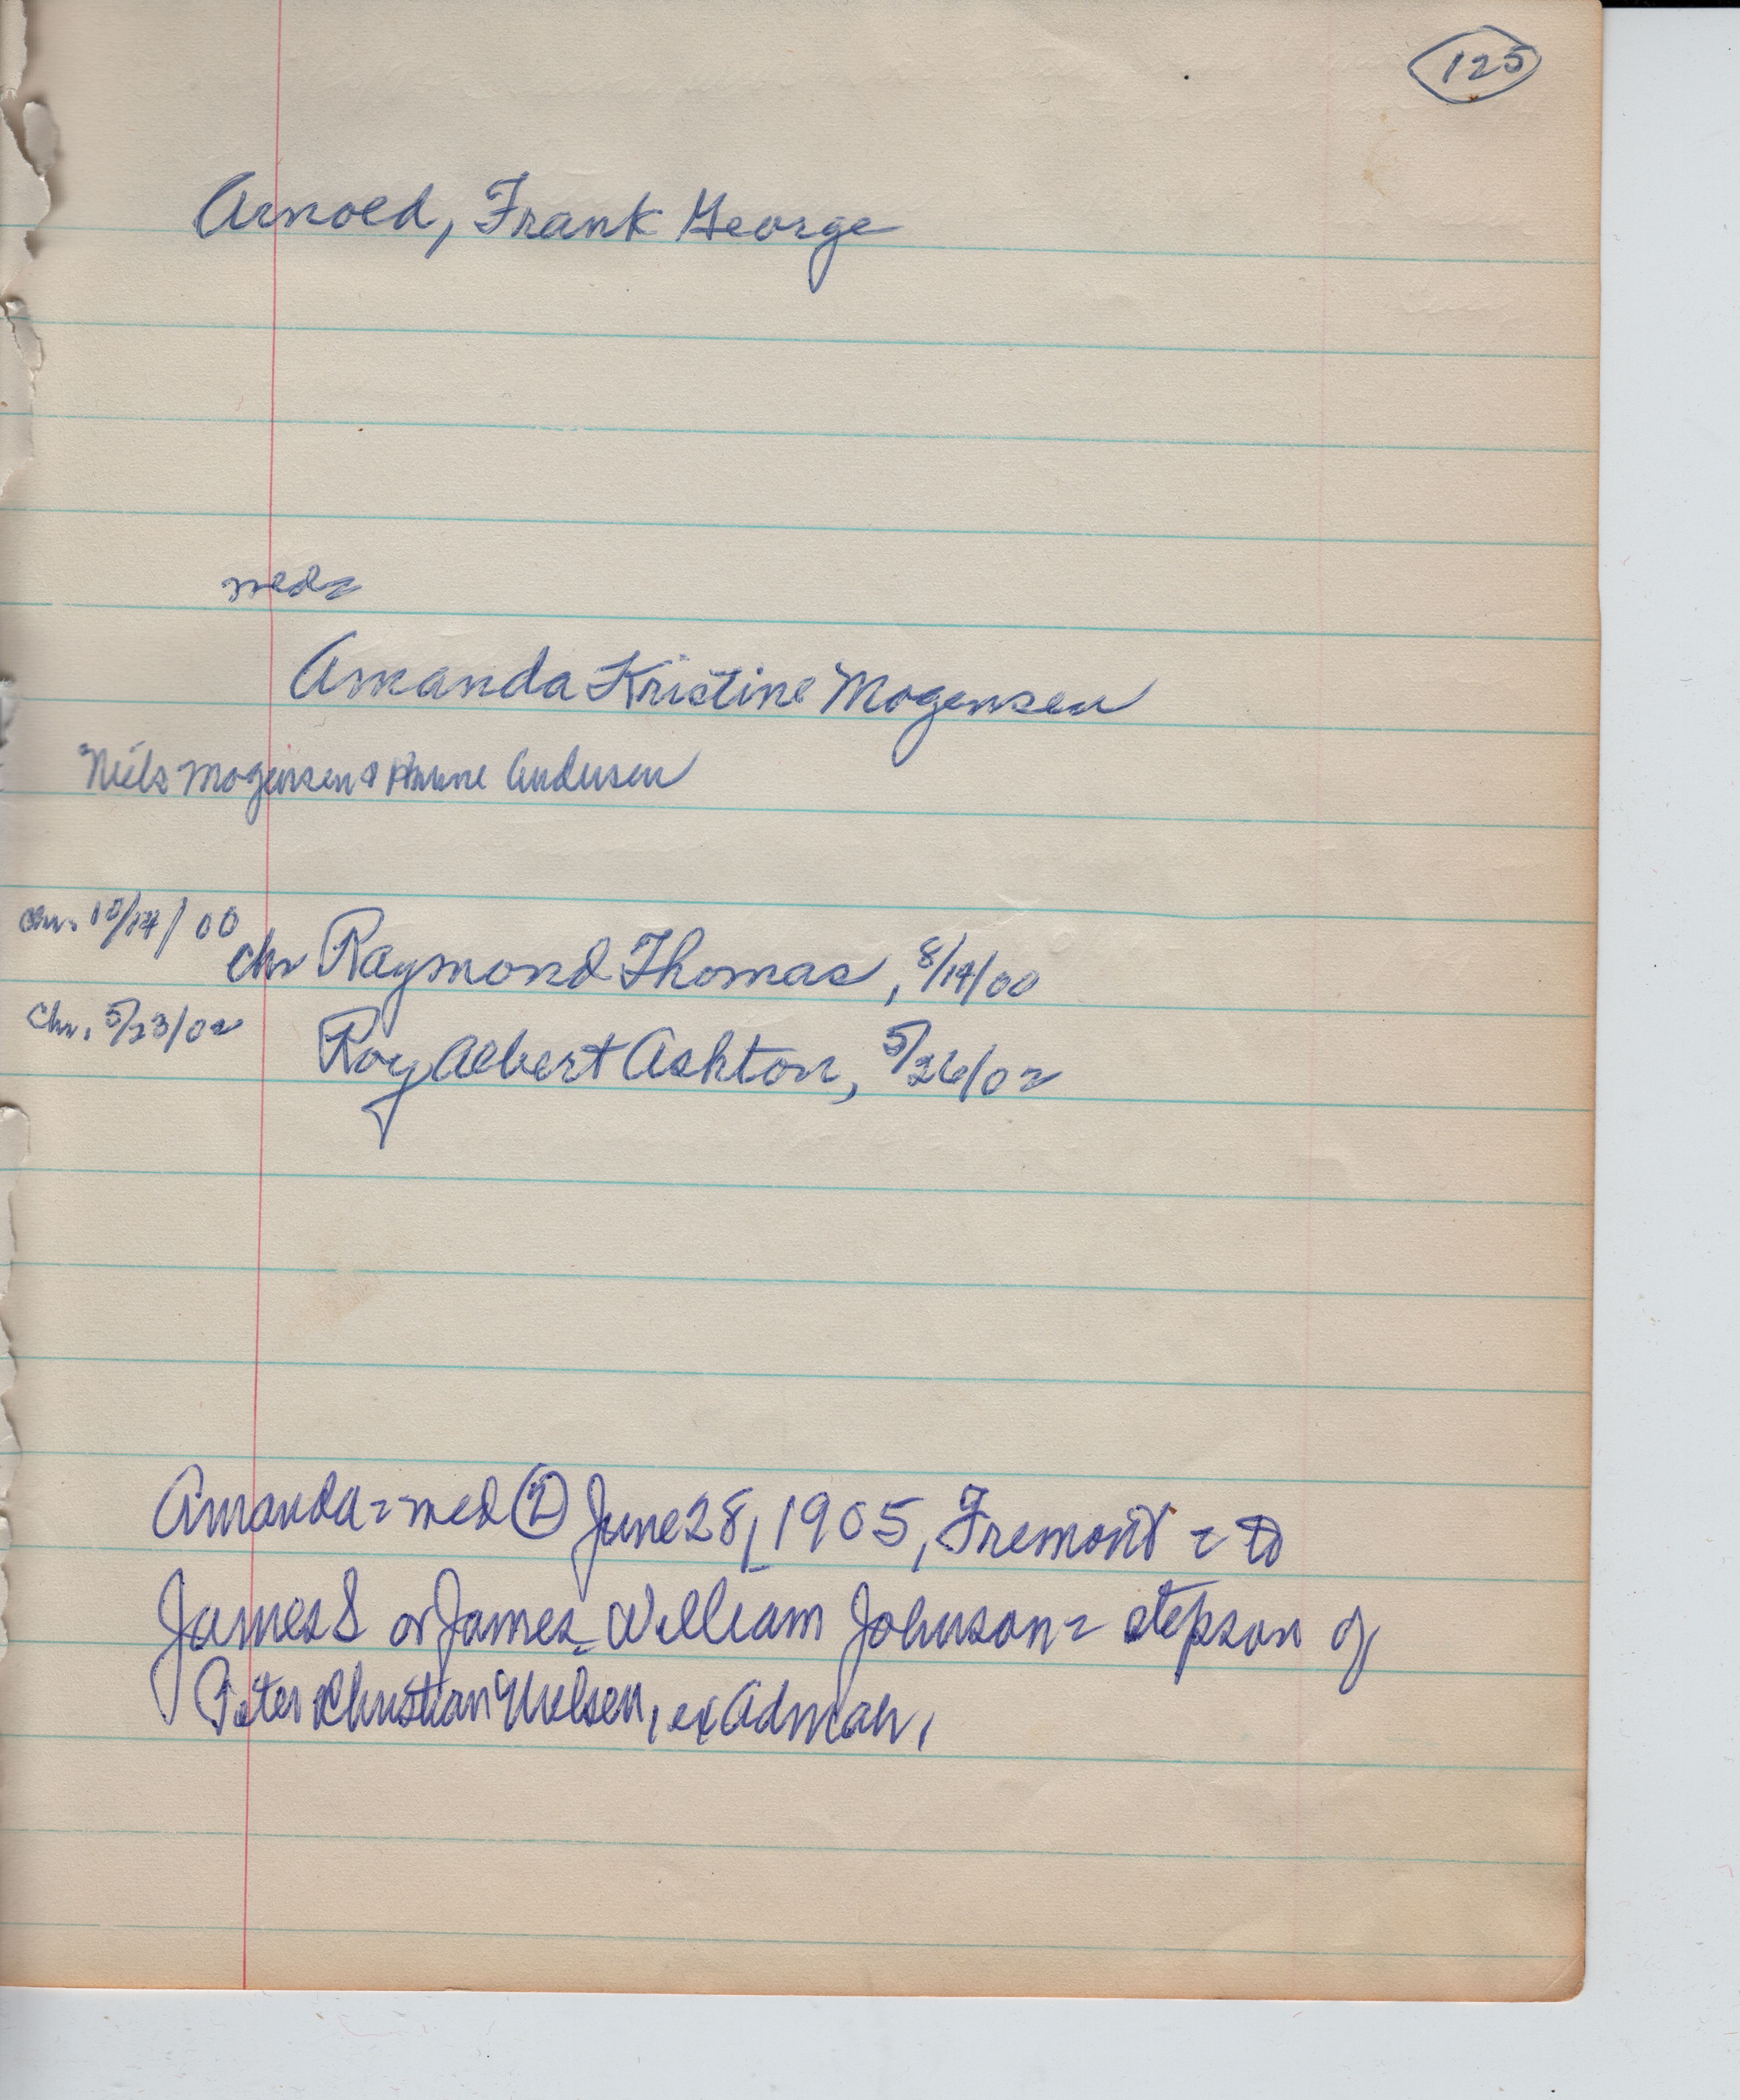 125
Arnold, Frank George
med=
Amanda Kristine Mogensen
Niels Mogensen & Anne Andersen
chr. 10/14/00
chr Raymond Thomas, 8/14/00
Chr. 5/23/02
Roy Albert Ashton, 5/26/02
Amanda = med ② June 28, 1905, Fremont = to
James S or James William Johnson = stepson of
Peter Christian Nielsen, ex